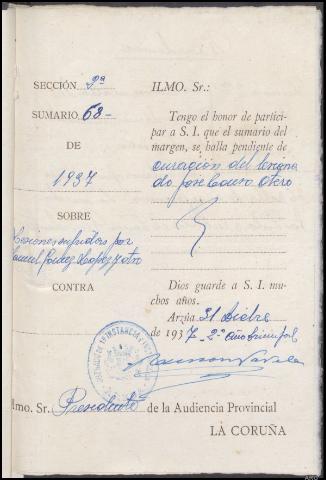 SECCIÓN 2ª
SUMARIO 68-
DE
1937
SOBRE
Lesiones sufridas por
Manuel López y otro
CONTRA
ILMO. Sr.:
Tengo el honor de partici-
par a S. I. que el sumario del
margen, se halla pendiente de
curación del lesiona
do jose Couso Otero
Dios guarde a S. I. mu-
chos años.
Arzúa 31 Dicbre
de 1937-2º Año triunfal
Ilmo. Sr. Presidente de la Audiencia Provincial
LA CORUÑA